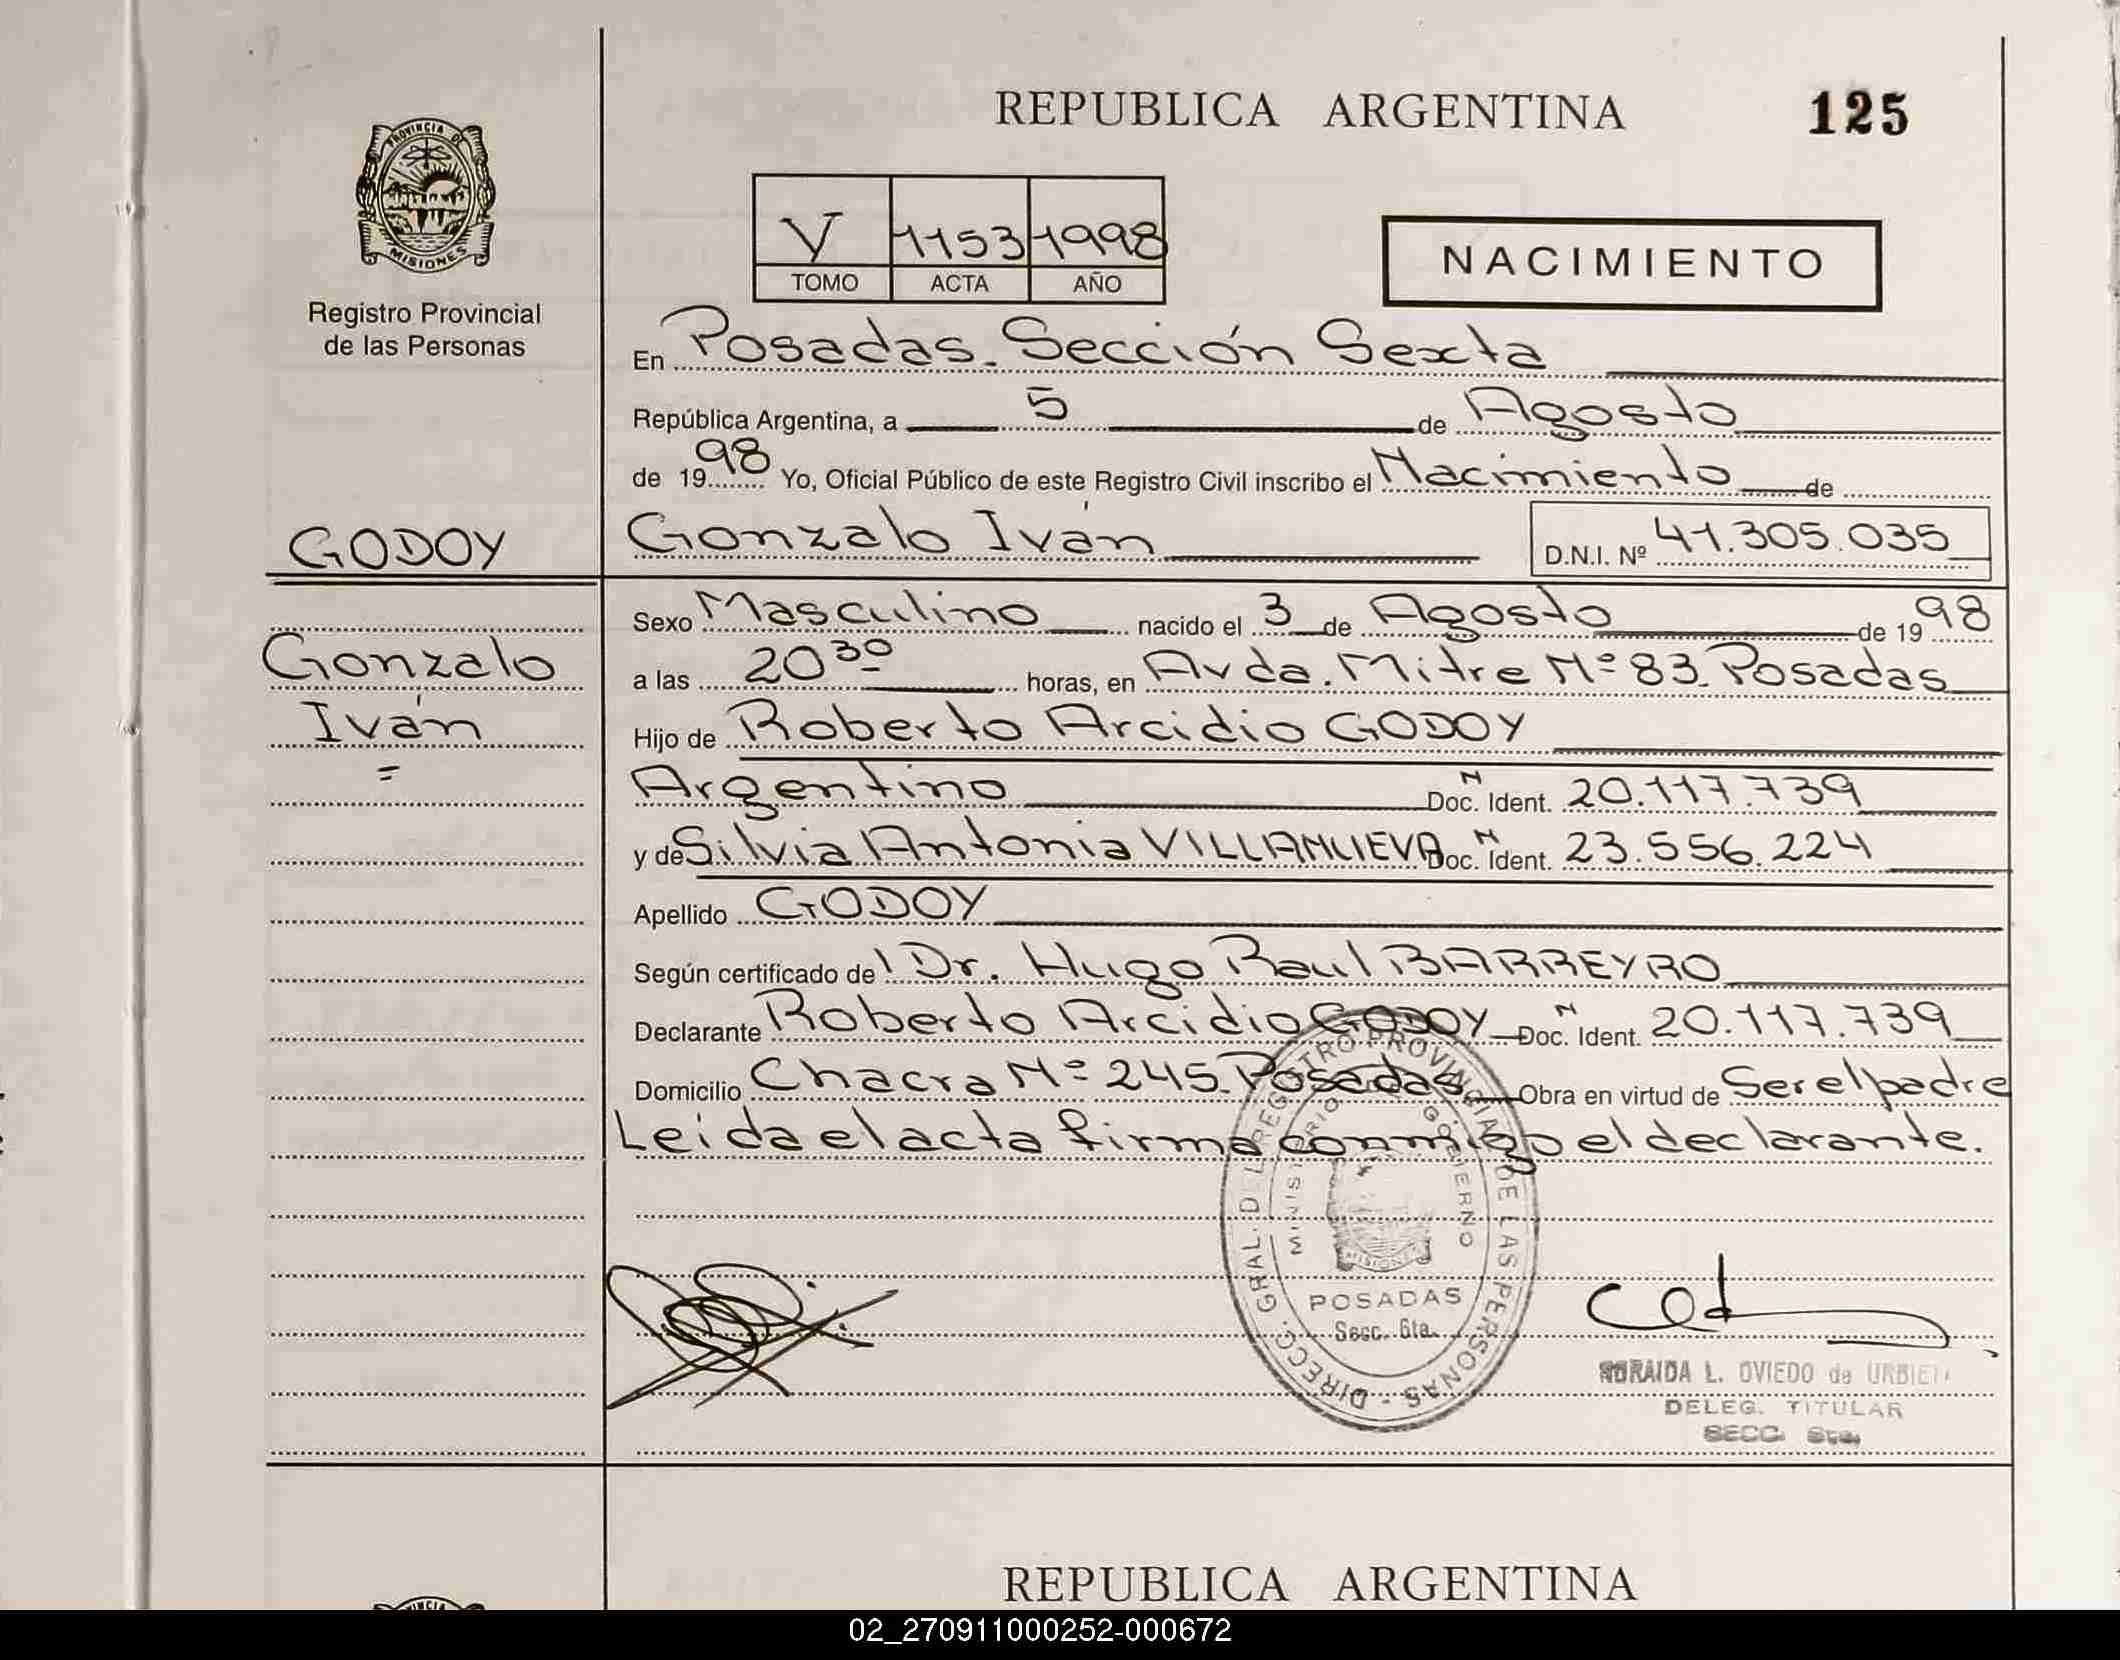 REPUBLICA ARGENTINA
125
PROVINCIA DE
MISIONES
Registro Provincial
de las Personas
V 1153 1998
TOMO ACTA AÑO
NACIMIENTO
En Posadas. Sección Sexta
República Argentina, a 5 de Agosto
de 1998 Yo, Oficial Público de este Registro Civil inscribo el Nacimiento de
GODOY
Gonzalo Iván D.N.I. Nº 41.305.035
Sexo Masculino nacido el 3 de Agosto de 1998
Gonzalo
a las 20 30 horas, en Avda. Mitre Nº 83. Posadas
Iván
Hijo de Roberto Arcidio GODOY
=
Argentino Doc. N Ident. 20.117.739
y de Silvia Antonia VILLANUEVA Doc. N Ident. 23.556.224
Apellido GODOY
Según certificado del Dr. Hugo Raul BARREYRO
Declarante Roberto Arcidio GODOY Doc. N Ident. 20.117.739
Domicilio Chacra Nº 245. Posadas Obra en virtud de Ser el padre
Leida el acta firma conmigo el declarante.
DIRECC. GRAL. DEL REGISTRO PROVINCIAL DE LAS PERSONAS -
MINISTERIO GOBIERNO
MISIONES
POSADAS
Secc. 6ta.
L. OVIEDO de
DELEG. TITULAR
SECC. 6ta.
REPUBLICA ARGENTINA
02_270911000252-000672